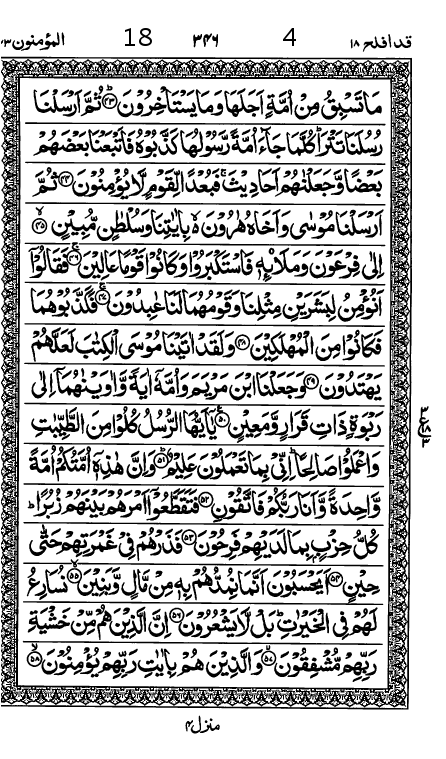 قد افلح ١٨ 4 ٣٤٦ 18 المؤمنون ٢٣
مَا تَسْبِقُ مِنْ اُمَّةٍ اَجَلَهَا وَمَا يَسْتَاْخِرُوْنَ ﴿٤٣﴾ ثُمَّ اَرْسَلْنَا
رُسُلَنَا تَتْرَا ؕ كُلَّمَا جَآءَ اُمَّةً رَّسُوْلُهَا كَذَّبُوْهُ فَاَتْبَعْنَا بَعْضَهُمْ
بَعْضًا وَّجَعَلْنٰهُمْ اَحَادِيْثَ ۚ فَبُعْدًا لِّقَوْمٍ لَّا يُؤْمِنُوْنَ ﴿٤٤﴾ ثُمَّ
اَرْسَلْنَا مُوْسٰى وَاَخَاهُ هٰرُوْنَ ۙ۬ بِاٰيٰتِنَا وَسُلْطٰنٍ مُّبِيْنٍ ﴿٤٥﴾
اِلٰى فِرْعَوْنَ وَمَلَا۟ئِهٖ فَاسْتَكْبَرُوْا وَكَانُوْا قَوْمًا عَالِيْنَ ﴿٤٦﴾ فَقَالُوْۤا
اَنُؤْمِنُ لِبَشَرَيْنِ مِثْلِنَا وَقَوْمُهُمَا لَنَا عٰبِدُوْنَ ﴿٤٧﴾ فَكَذَّبُوْهُمَا
فَكَانُوْا مِنَ الْمُهْلَكِيْنَ ﴿٤٨﴾ وَلَقَدْ اٰتَيْنَا مُوْسَى الْكِتٰبَ لَعَلَّهُمْ
يَهْتَدُوْنَ ﴿٤٩﴾ وَجَعَلْنَا ابْنَ مَرْيَمَ وَاُمَّهٗۤ اٰيَةً وَّاٰوَيْنٰهُمَاۤ اِلٰى
رَبْوَةٍ ذَاتِ قَرَارٍ وَّمَعِيْنٍ ﴿٥٠﴾ يٰۤاَيُّهَا الرُّسُلُ كُلُوْا مِنَ الطَّيِّبٰتِ
وَاعْمَلُوْا صَالِحًا ؕ اِنِّيْ بِمَا تَعْمَلُوْنَ عَلِيْمٌ ﴿٥١﴾ وَاِنَّ هٰذِهٖۤ اُمَّتُكُمْ اُمَّةً
وَّاحِدَةً وَّاَنَا رَبُّكُمْ فَاتَّقُوْنِ ﴿٥٢﴾ فَتَقَطَّعُوْۤا اَمْرَهُمْ بَيْنَهُمْ زُبُرًا ؕ
كُلُّ حِزْبٍۭ بِمَا لَدَيْهِمْ فَرِحُوْنَ ﴿٥٣﴾ فَذَرْهُمْ فِيْ غَمْرَتِهِمْ حَتّٰى
حِيْنٍ ﴿٥٤﴾ اَيَحْسَبُوْنَ اَنَّمَا نُمِدُّهُمْ بِهٖ مِنْ مَّالٍ وَّبَنِيْنَ ﴿٥٥﴾ نُسَارِعُ
لَهُمْ فِي الْخَيْرٰتِ ؕ بَلْ لَّا يَشْعُرُوْنَ ﴿٥٦﴾ اِنَّ الَّذِيْنَ هُمْ مِّنْ خَشْيَةِ
رَبِّهِمْ مُّشْفِقُوْنَ ﴿٥٧﴾ وَالَّذِيْنَ هُمْ بِاٰيٰتِ رَبِّهِمْ يُؤْمِنُوْنَ ﴿٥٨﴾
منزل ٤